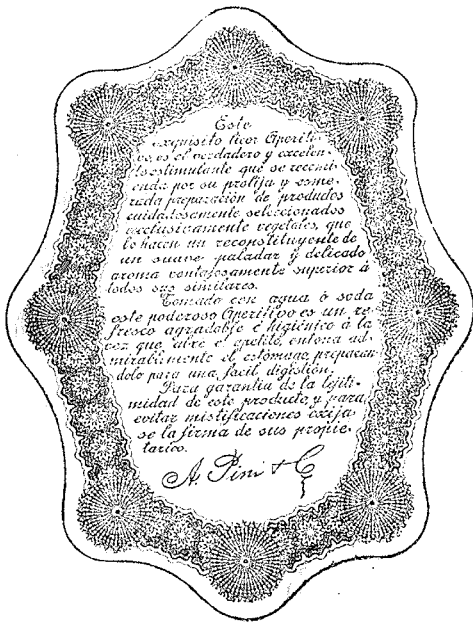 Este
exquisito licor Aperiti-
vo, es el verdadero y excelen-
te estimulante que se recomi-
enda por su prolija y esme-
rada preparación de produdos
cuidadosamente seleccionados
exclusivamente vegetales, que
lo hacen un reconstituyente de
un suave paladar y delicado
aroma ventajosamente superior á
todos sus similares.
Tomado con agua ó soda
este poderoso Aperitivo es un re
fresco agradable é higiénico á la
vez que abre el apetito, entona ad-
mirablemente el estómago preparán
dolo para una fácil digestión.
Para garantia de la lejiti-
midad de este producto, y para
evitar mistificaciones exija
se la firma de sus propie-
tarios.
A. Pini & C